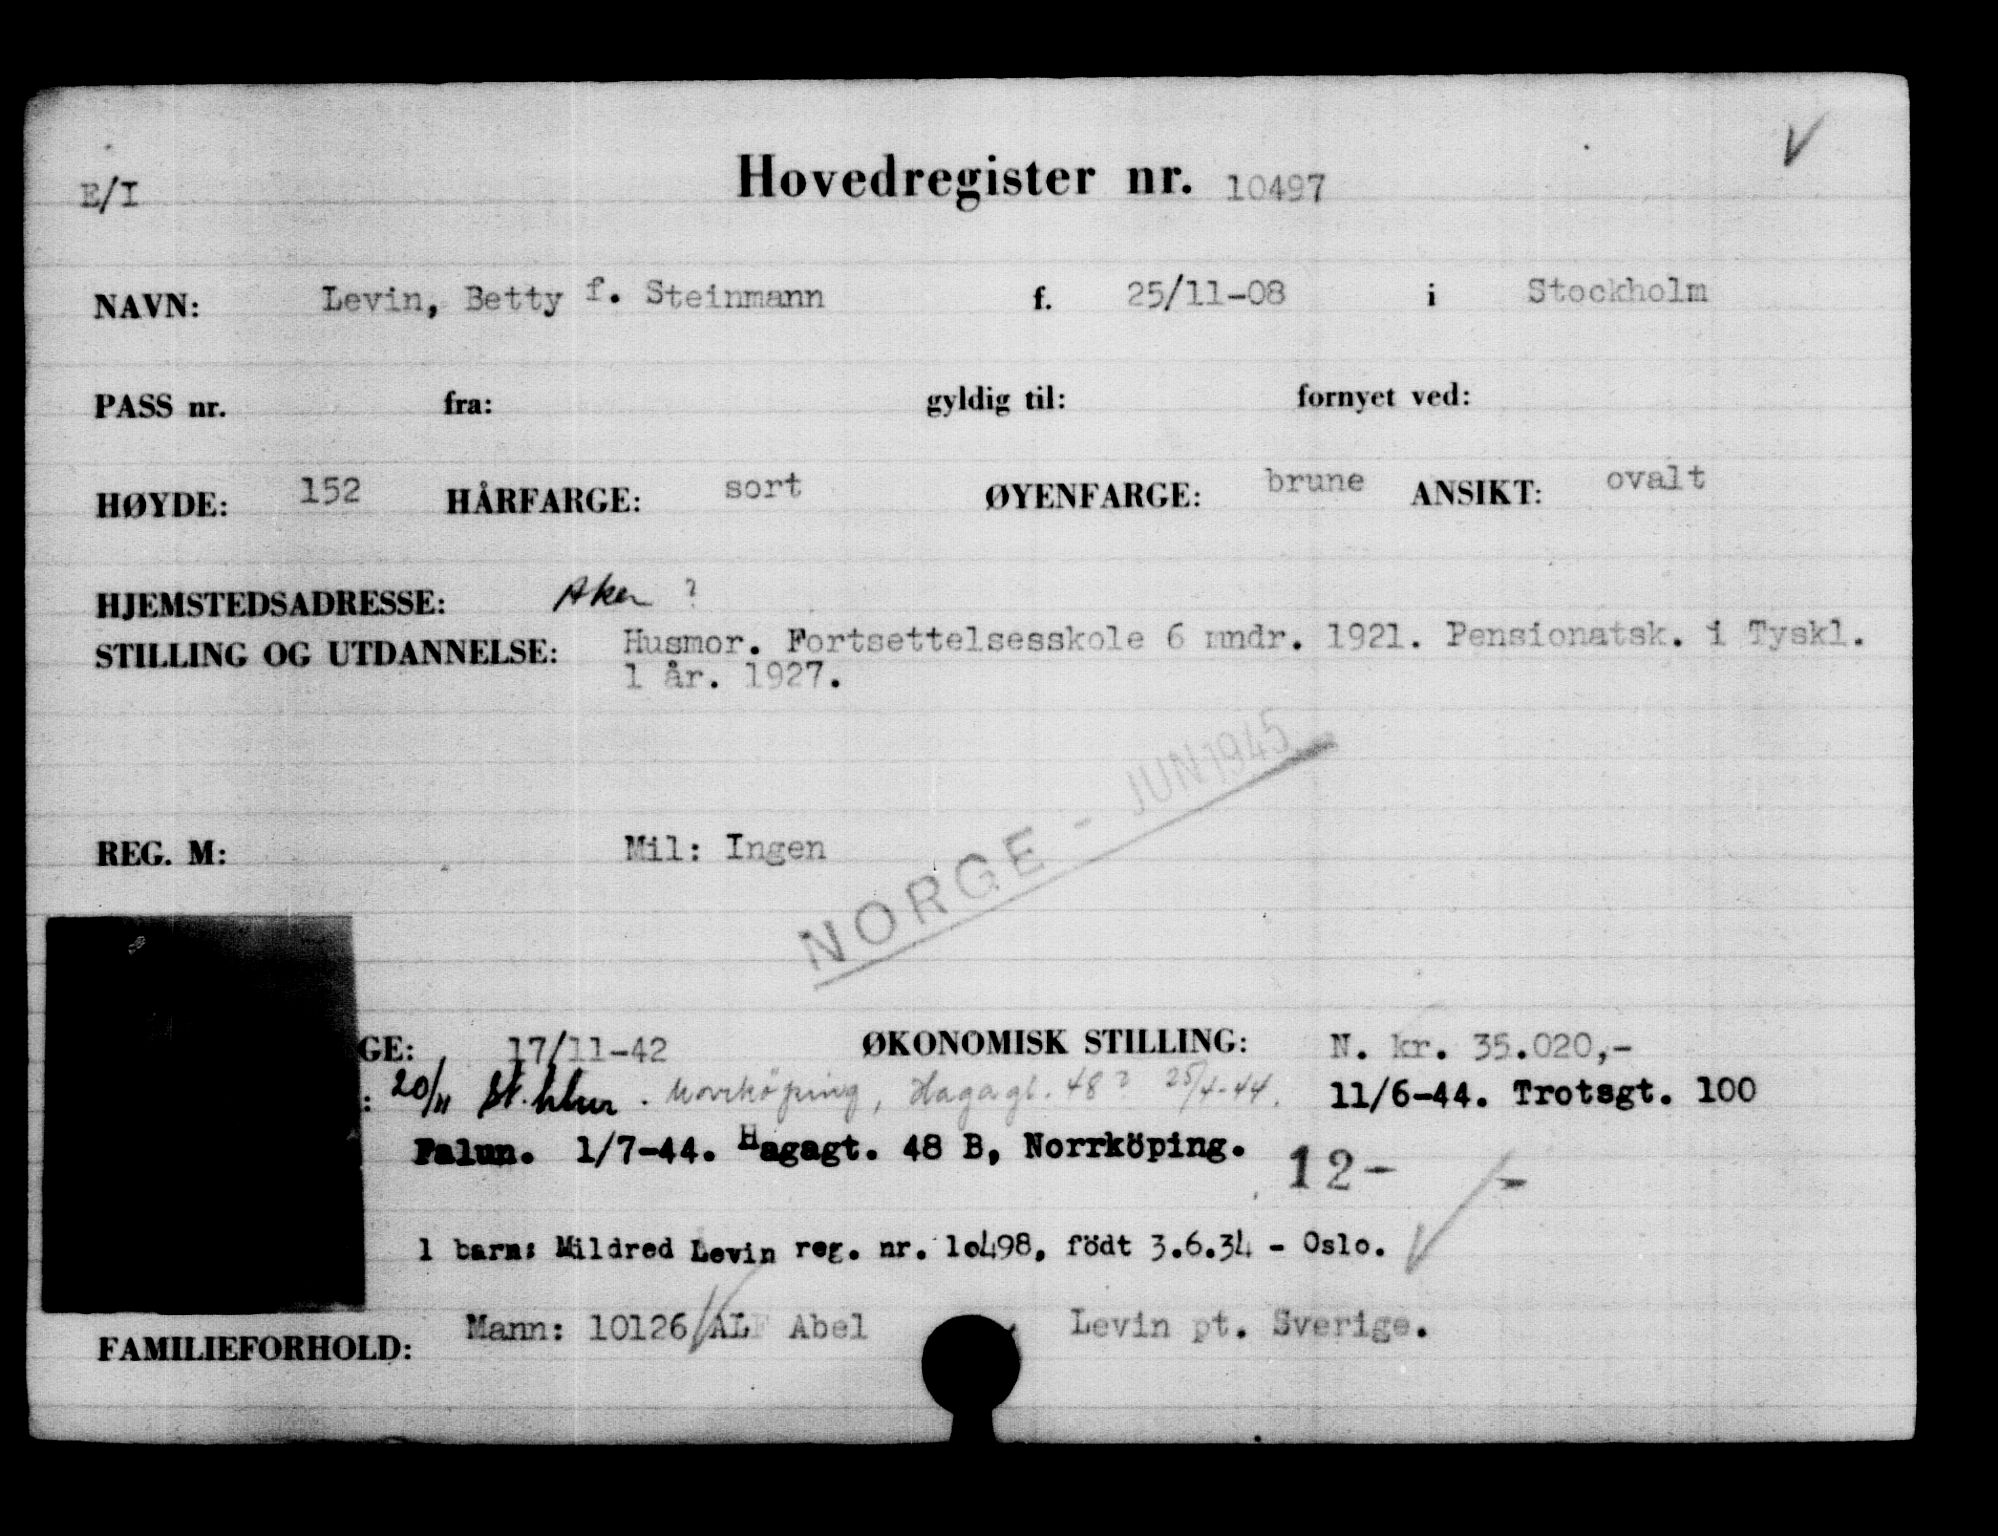 E/I
Hovedregister nr. 10497
NAVN: Levin, Betty f. Steinmann f. 25/11-08 i Stockholm
PASS nr. fra: gyldig til: fornyet ved:
HØYDE: 152 HÅRFARGE: sort ØYENFARGE: brune ANSIKT: ovalt
HJEMSTEDSADRESSE: Aker ?
STILLING OG UTDANNELSE: Husmor. Fortsettelsesskole 6 mndr. 1921. Pensionatsk. i Tyskl.
1 år. 1927.
NORGE - JUN 1945
REG. M: Mil: Ingen
GE: 17/11-42 ØKONOMISK STILLING: N. kr. 35.020,-
: 20/11 Norrköping, Hagagt. 48? 25/4-44. 11/6-44. Trotsgt. 100
Falun. 1/7-44. Hagagt. 48 B, Norrköping. 12-
1 barn: Mildred Levin reg. nr. 10498, födt 3.6.34 - Oslo.
FAMILIEFORHOLD: Mann: 10126/AL Abel Levin pt. Sverige.